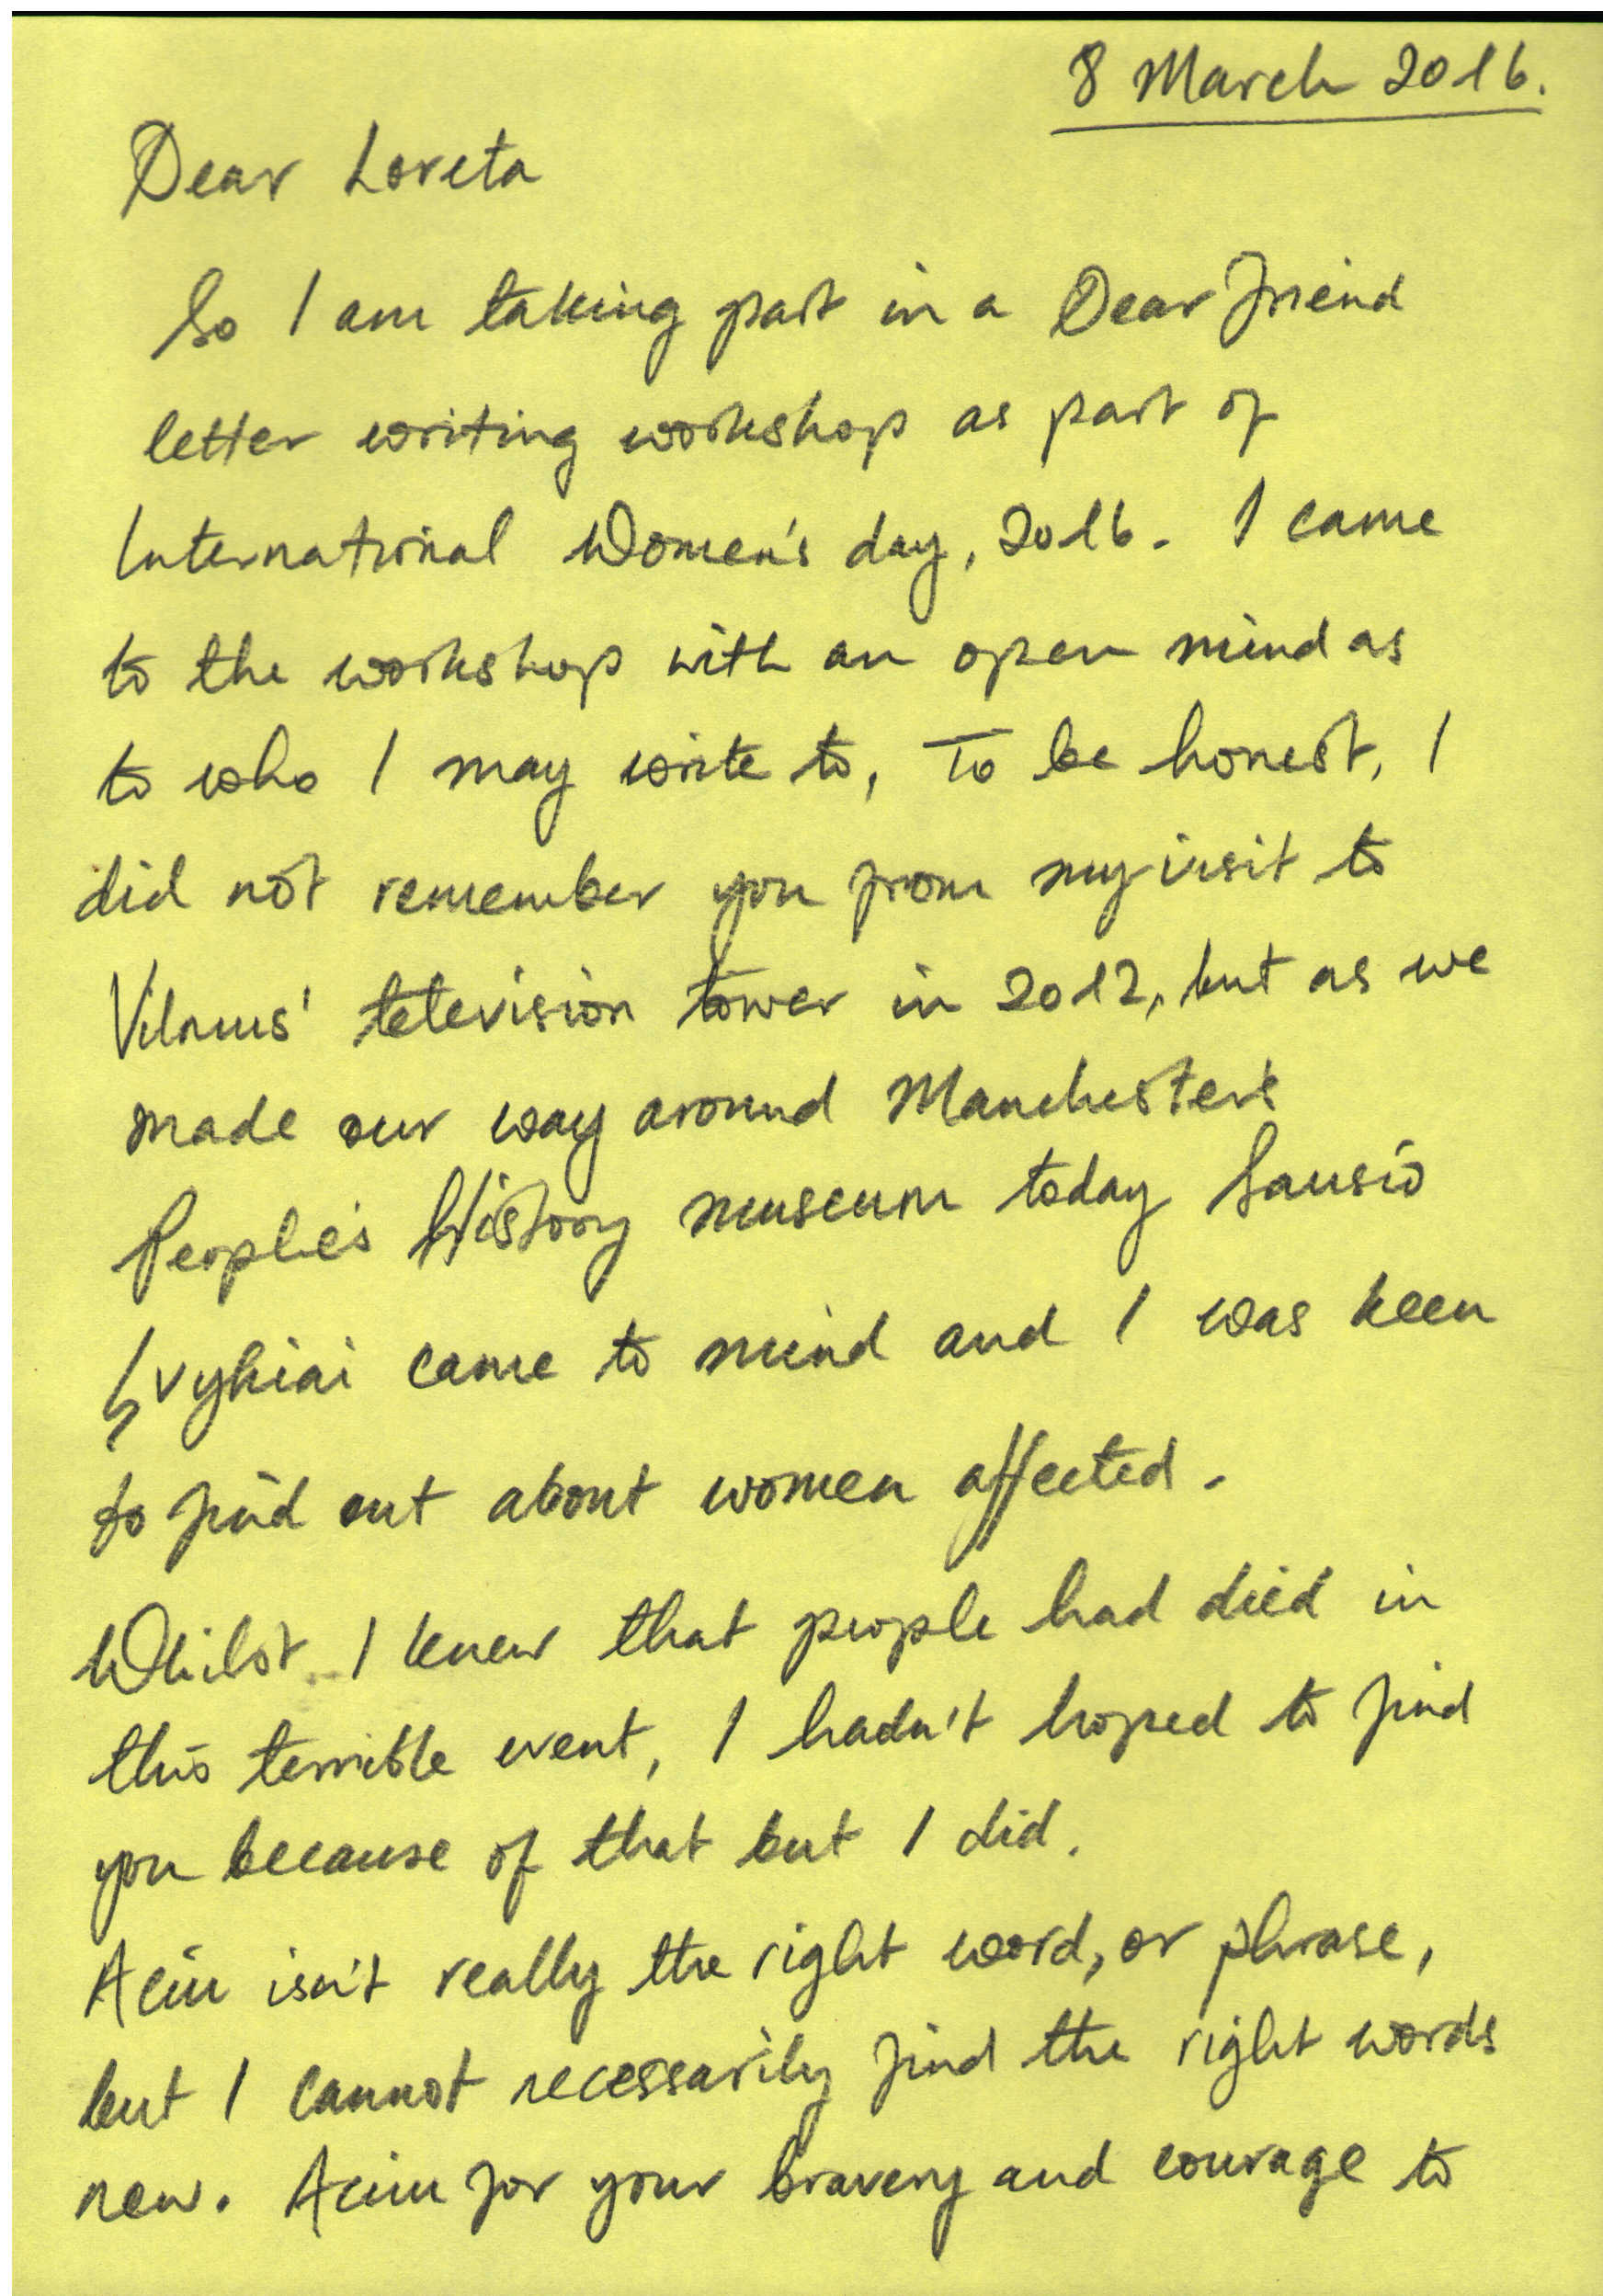 8 March 2016.
Dear Loreta
So I am taking part in a Dear Friend
letter writing workshop as part of
International Women's day, 2016. I came
to the workshop with an open mind as
to who I may write to, To be honest, I
did not remember you from my visit to
Vilnius' television tower in 2012, but as we
made our way around Manchester's
People's History museum today Sausio
Įvykiai came to mind and I was keen
to find out about women affected.
Whilst I knew that people had died in
this terrible event, I hadn't hoped to find
you because of that but I did.
Aciu isn't really the right word, or phrase,
but I cannot necessarily find the right words
now. Aciu for your bravery and courage to